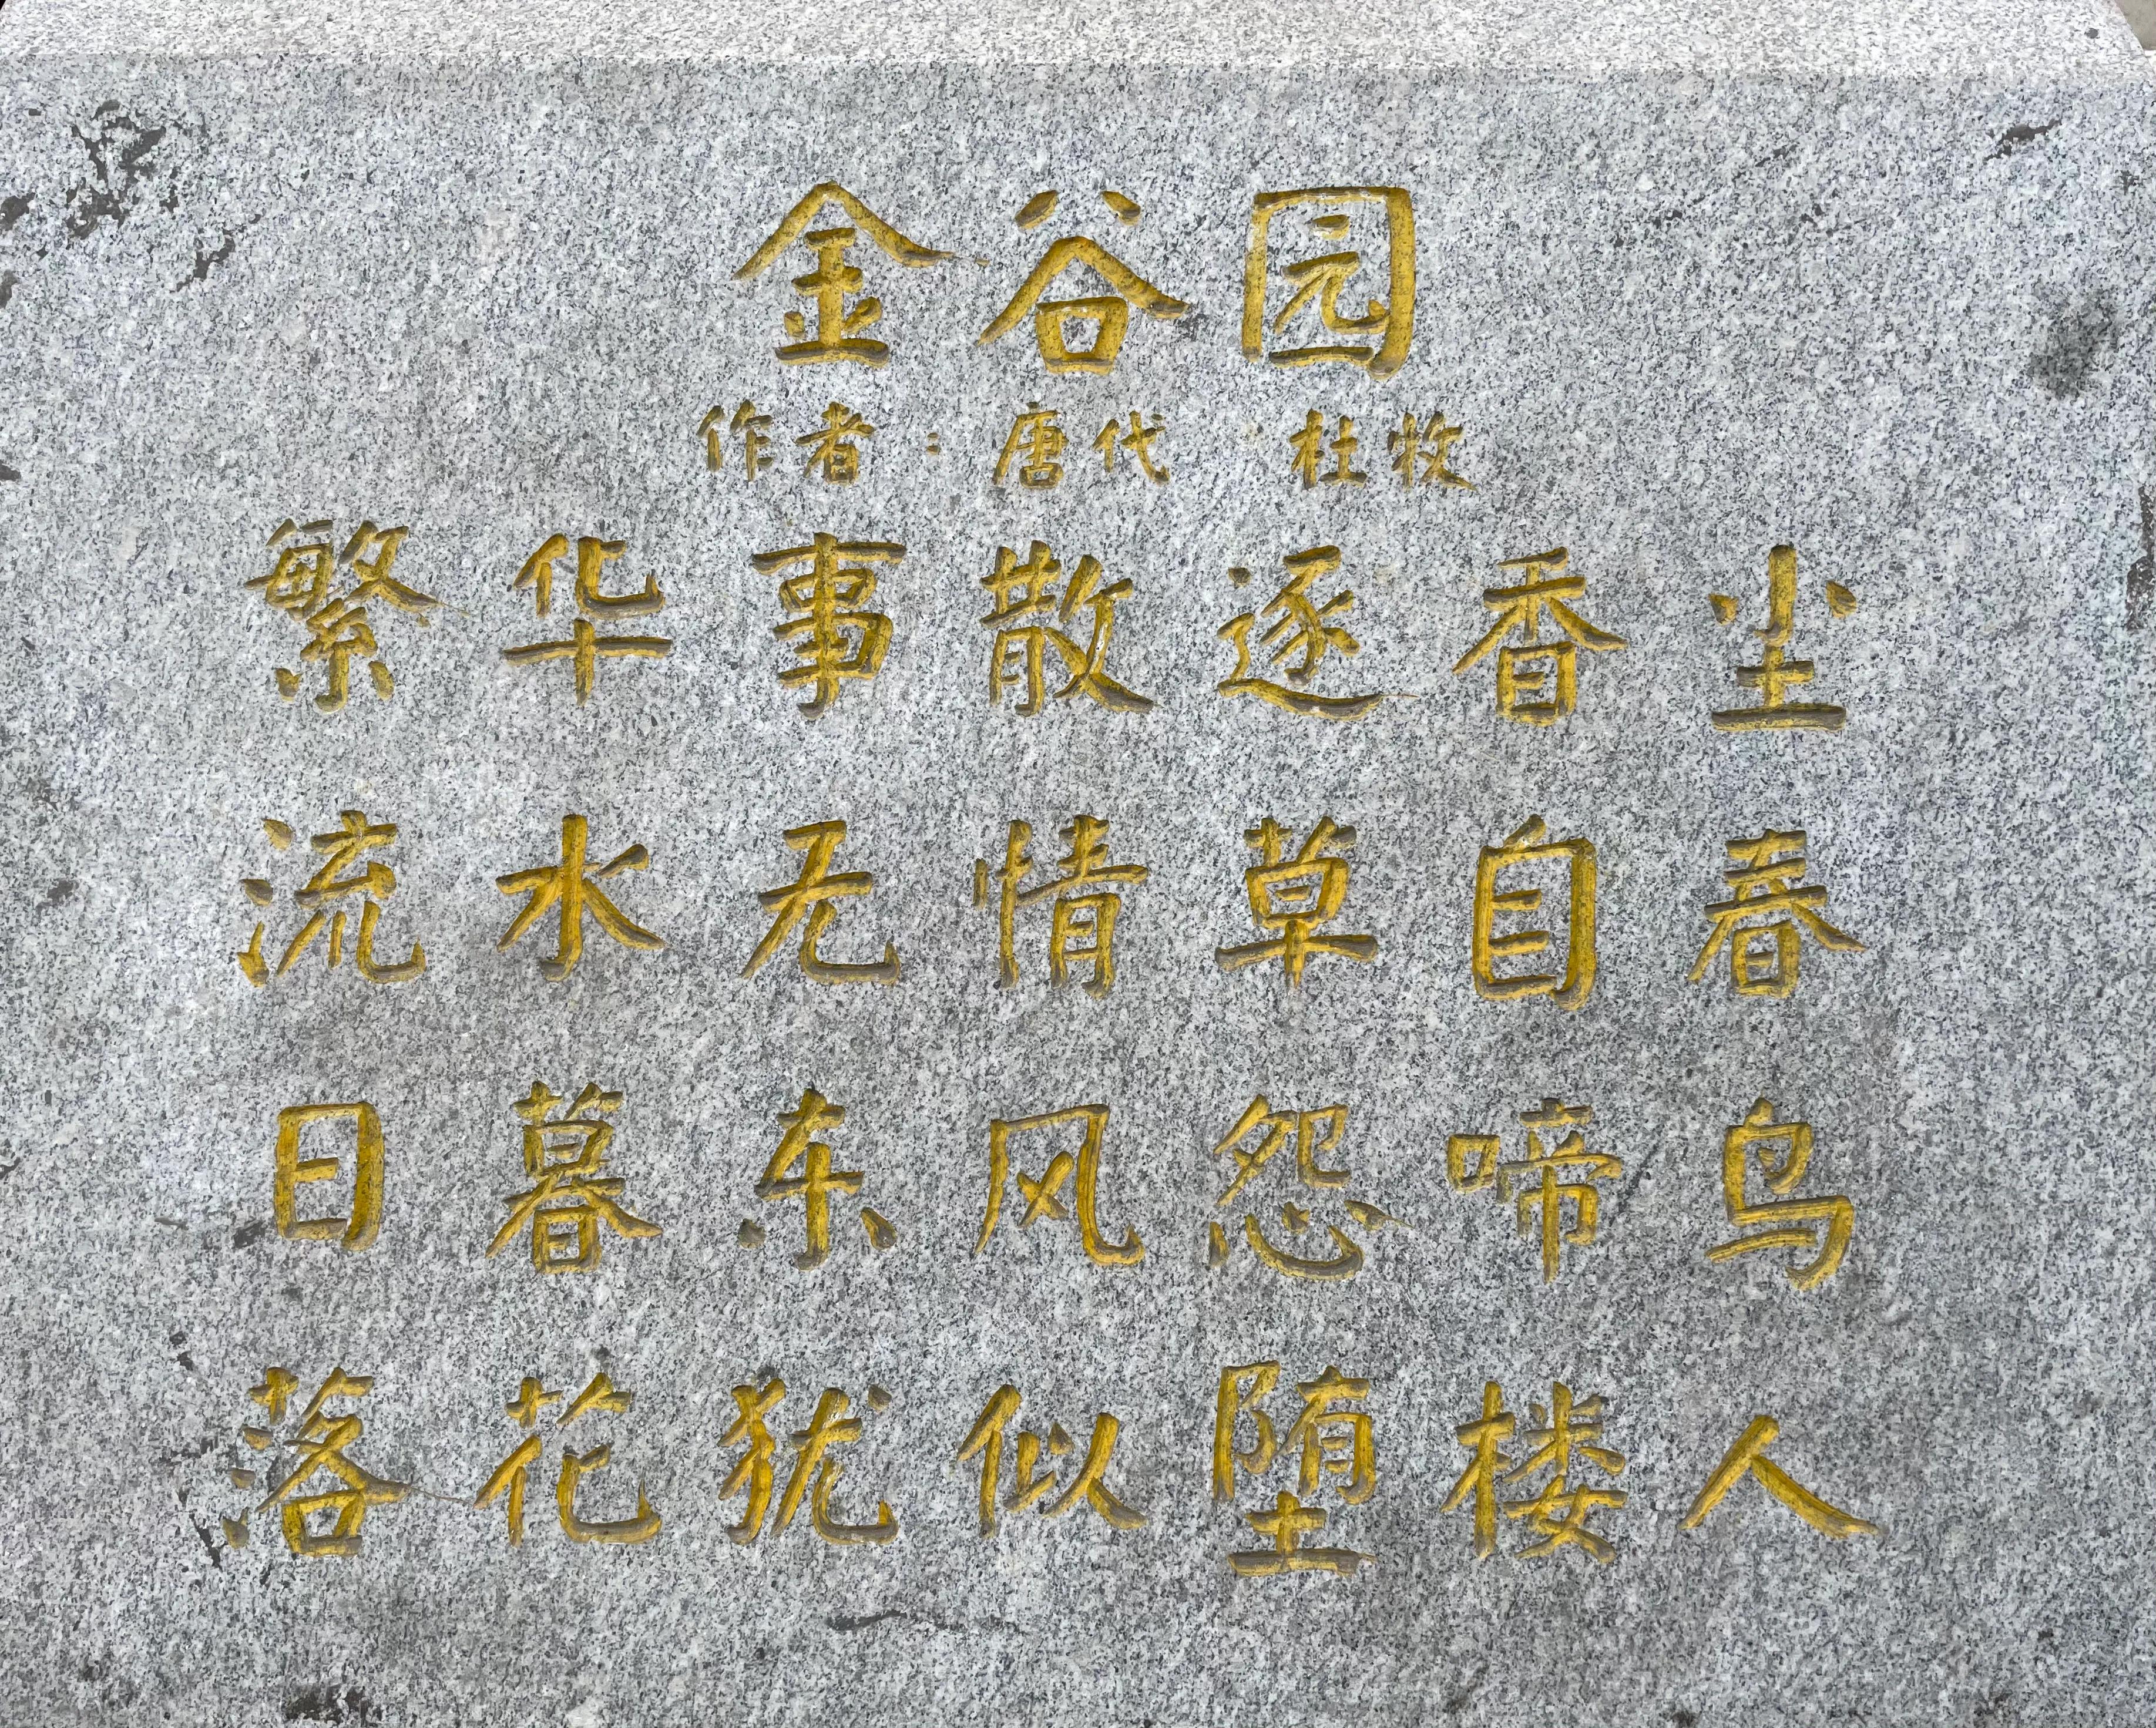 金谷园
作者：唐代 杜牧
繁华事散逐香尘
流水无情草自春
日暮东风怨啼鸟
落花犹似堕楼人